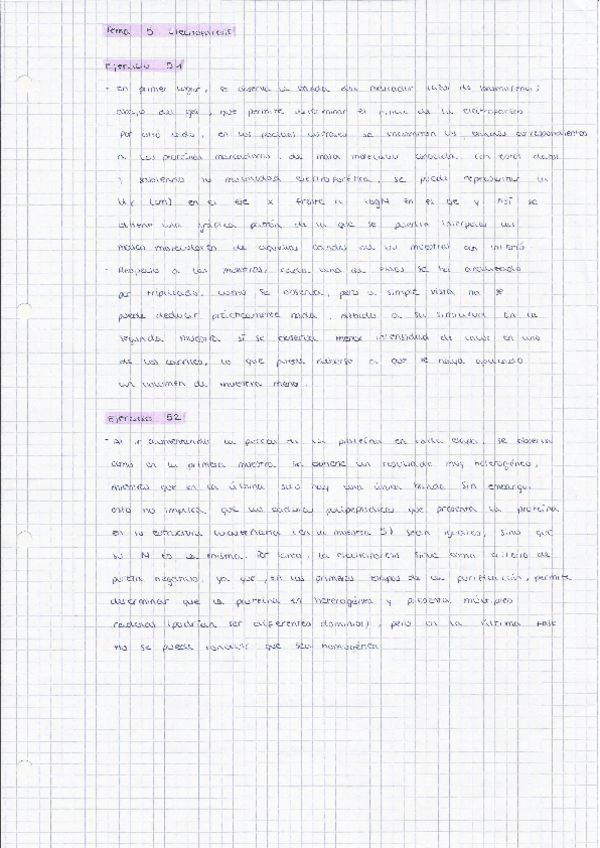 Tema 5 Electroforesis
Ejercicio 5.1
- En primer lugar, se observa la banda del marcador
abajo del gel, que permite determinar el de la electroforesis
por otro lado, en los pocillos se encuentran las bandas correspondientes
a las proteínas marcadoras, de masa molecular conocida. Con estos datos
y sabiendo la movilidad electroforética, se puede representar la
(cm) en el eje x frente a logM en el eje y. Así se
obtiene una gráfica patrón de la que se pueden interpolar las
masas moleculares de aquellas bandas de la muestra de interés.
- Respecto a las muestras, cada una de ellas se ha analizado
por triplicado. como se observa, pero a simple vista no se
puede deducir prácticamente nada, debido a su similitud. En la
segunda muestra sí se observa menor intensidad de color en uno
de los carriles, lo que puede deberse a que se haya aplicado
un volumen de muestra menor.
Ejercicio 5.2
- Al ir aumentando la pureza de la proteína en cada etapa, se observa
como en la primera muestra se obtiene un resultado muy heterogéneo,
mientras que en la última solo hay una única banda. Sin embargo,
esto no implica que las cadenas polipeptídicas que presenta la proteína
en su estructura cuaternaria (en la muestra 5) sean iguales, sino que
su M es la misma. Por tanto, la electroforesis sirve como criterio de
pureza negativo, ya que, en las primeras etapas de la purificación, permite
determinar que la proteína es heterogénea y presenta múltiples
cadenas (podrían ser diferentes dominios), pero en la última fase
no se puede concluir que sea homogénea